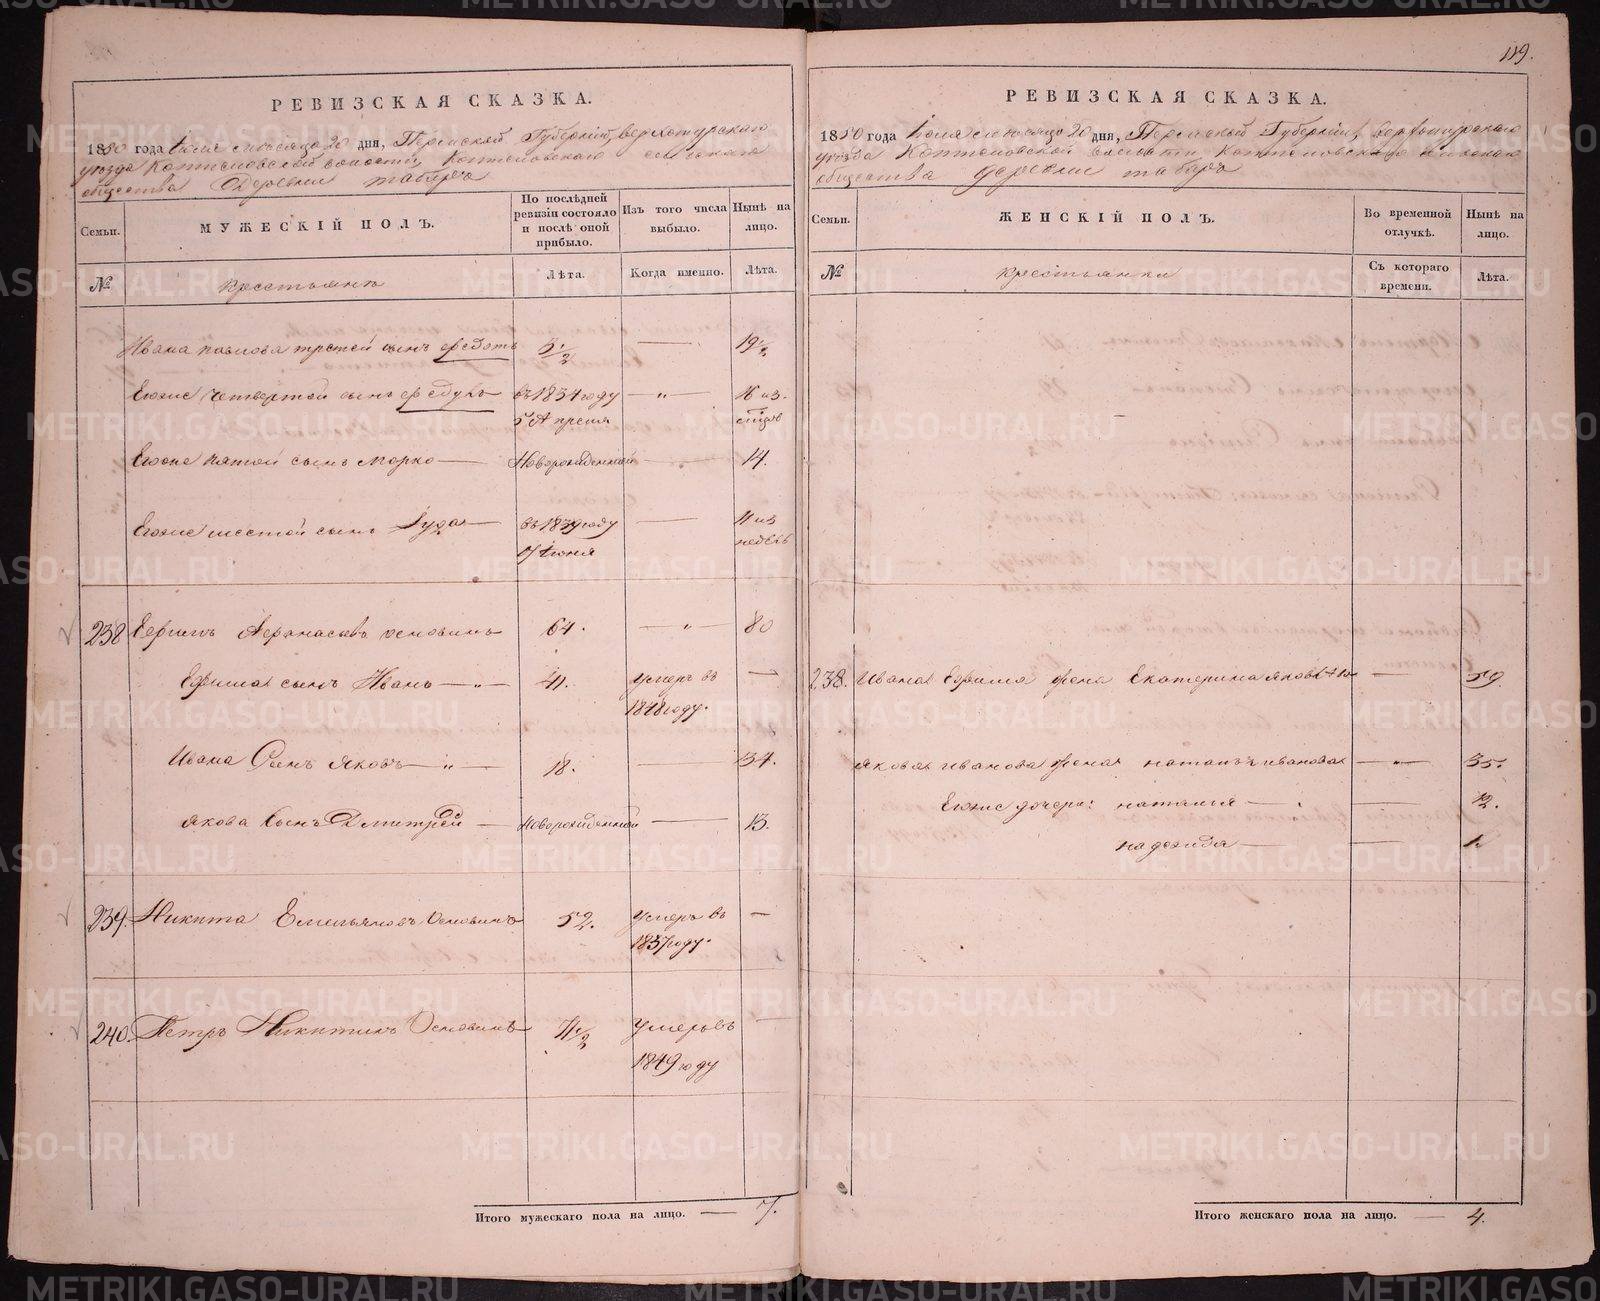 РЕВИЗСКАЯ СКАЗКА.
1850 года Июля месяца 20 дня, Пермской Губернiи, верхотурскаго
уезда Коптеловской волости, Коптеловскаго сельскаго
общества Деревни таборъ
Семьи.
МУЖЕСКIЙ ПОЛЪ.
По послѣдней ревизiи состояло и послѣ оной прибыло.
Изъ того числа выбыло.
Нынѣ на лицо.
№
Крестьяне
Лѣта.
Когда именно.
Лѣта.
Ивана павлова третей сынъ федотъ 3 1/2 — 19 1/2
Егоже четвертой сынъ въ 1834 году — „ — 16 из.
5 Апреля
Егоже пятой сынъ Марко — Новорожденный — 14.
Егоже шестой сынъ Iуда — въ 1839 году — 11 из
17 Iюня
238 Ефимъ Афанасьевъ осповинъ 64. — „ — 80
Ефима сынъ Иванъ — „ — 41. умеръ въ —
1848 году.
Ивана Сынъ Яковъ — „ — 18. — 34.
Якова Сынъ Дмитрей — Новорожденной — 13.
239. Никита Емельяновъ Осповинъ 52. умеръ въ —
1837 году.
240. Петръ Никитинъ Осповинъ умеръ въ —
1849 году
Итого мужескаго пола на лицо. — 7.
119.
РЕВИЗСКАЯ СКАЗКА.
1850 года Июля месяца 20 дня, Пермской Губернiи, верхотурскаго
уезда Коптеловской волости Коптеловскаго сельскаго
общества деревни таборъ
Семьи.
ЖЕНСКIЙ ПОЛЪ.
Во временной отлучкѣ.
Нынѣ на лицо.
№
крестьянки
Съ котораго времени.
Лѣта.
238. Ивана Ефима жена Екатерина яковл — 59.
якова иванова жена ивановна — „ — 35.
Егоже дочери: наталья — „ — 12.
надежда — 1.
Итого женскаго пола на лицо. — 4.
METRIKI.GASO-URAL.RU